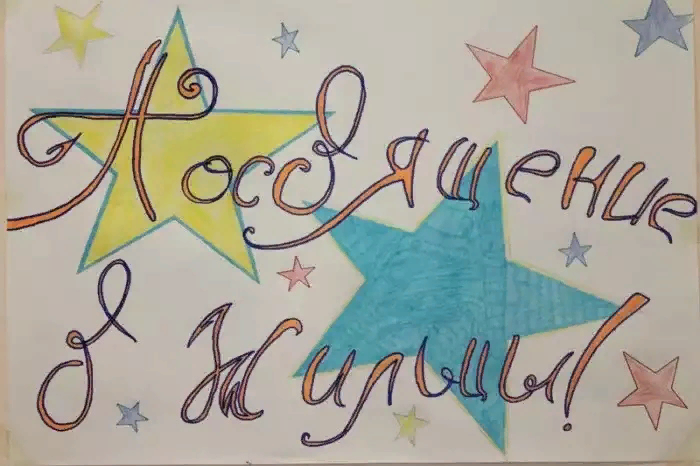 Посвящение
в Жильцы!